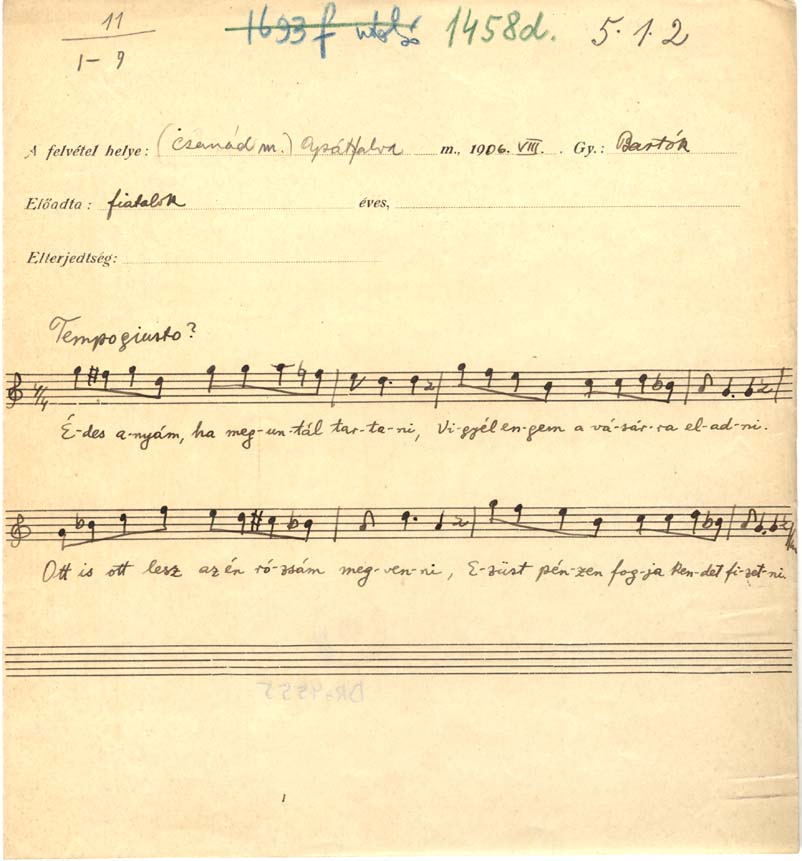 11
1-9
1693f utolsó 1458d. 5.1.2
A felvétel helye: (Csanád m.) Apátfalva m., 1906. VIII. Gy.: Bartók
Előadta: fiatalok éves,
Elterjedtség:
Tempo giusto?
4/4
É-des a-nyám, ha meg-un-tál tar-ta-ni, Vi-gyél en-gem a vá-sár-ra el-ad-ni.
Ott is ott lesz az én ró-zsám meg-ven-ni, E-züst pén-zen fog-ja ken-det fi-zet-ni.